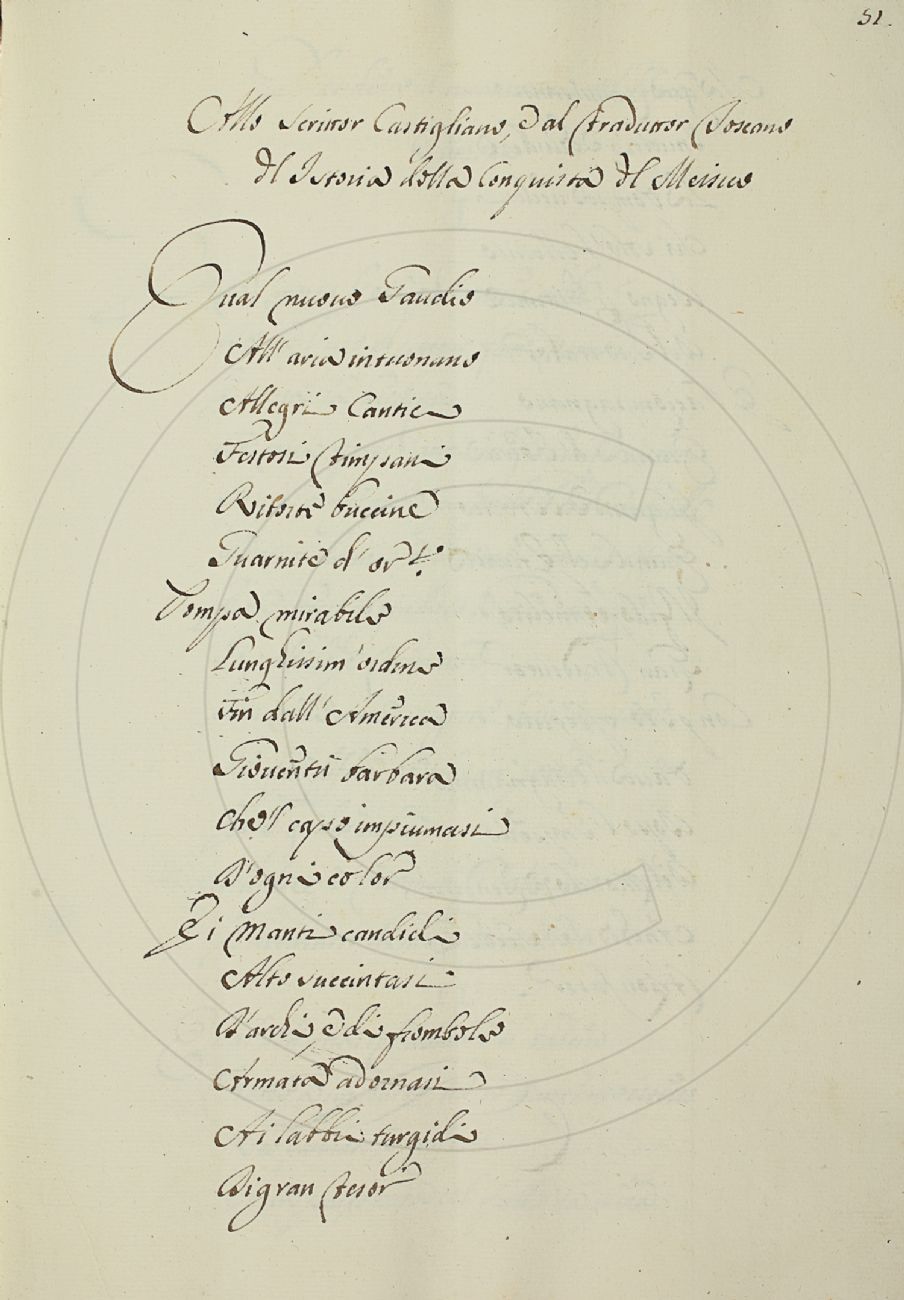 51.
Allo Scrittor Castigliano, è al Traduttor Toscano
dl Istoria della Conquista dl Messico
Qual nuouo Gaudio
All' aria intuonano
Allegri Cantici
Festosi timpani
Ritorte buccine
Guarnite d' or?
Pompa mirabile
Lunghissim' ordine
Fin dall' America
Gioventù barbara
Che'l capo impiumasi
D'ogni color
Di Manti candidi
Alto succintasi
D'archi, è di frombole
Armata adornasi
Ai labbri turgidi
Di gran tesor